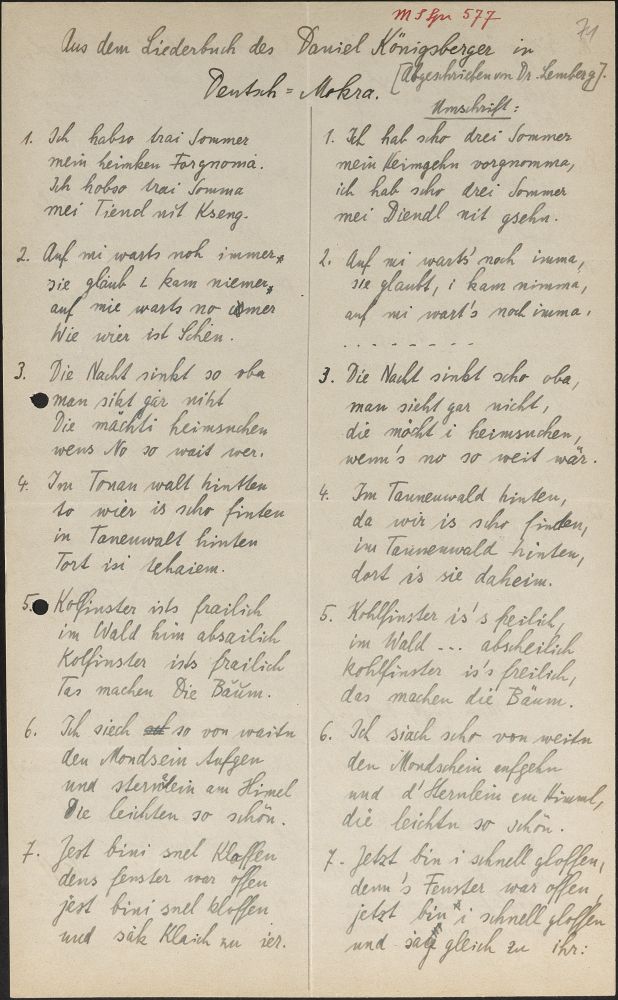 M S Spr 577
71
Aus dem Liederbuch des Daniel Königsberger in
Deutsch=Mokra.
[Abgeschrieben von Dr. Lemberg].
1. Ich habso trai Sommer
mein heimken Forgnoma.
Ich hobso trai Somma
mei Tiendl nit Kseng.
2. Auf mi warts noh immer,
sie gläub i kam niemer,
auf mie warts no immer
Wie wier ist Schen.
3. Die Nacht sinkt so oba
man sikt gar niht
Die mächti heimsuchen
wens No so wait wer.
4. Im Tonan walt hintten
to wier is scho finten
in Tanenwalt hinten
Tort isi tehaiem.
5. Kolfinster ists frailich
im Wald him absailich
Kolfinster ists frailich
Tas machen Die Bäum.
6. Ich siech so von waitn
den Mondsein Aufgen
und sternlein am Himel
Die leichten so schön.
7. Jest bini snel Kloffen
dens fenster war offen
jest bini snel kloffen
und säk Klaich zu ier.
Umschrift:
1. Ich hab scho drei Sommer
mein Heimgehn vorgnomma,
ich hab scho drei Sommer
mei Diendl nit gsehn.
2. Auf mi wart's noch imma,
sie glaubt, i kam nimma,
auf mi wart's noch imma.
- - - - - - - -
3. Die Nacht sinkt scho oba,
man sieht gar nicht,
die möcht i heimsuchen,
wenn's no so weit wär.
4. Im Tannenwald hinten,
da wir is scho finden,
im Tannenwald hinten,
dort is sie daheim.
5. Kohlfinster is's freilich,
im Wald --- abscheilich
kohlfinster is's freilich,
das machen die Bäum.
6. Ich siach scho von weitn
den Mondschein aufgehn
und d'Sternlein am Himml,
die leichtn so schön.
7. Jetzt bin i schnell gloffen,
denn's Fenster war offen,
jetzt bin i schnell gloffen
und sag gleich zu ihr: